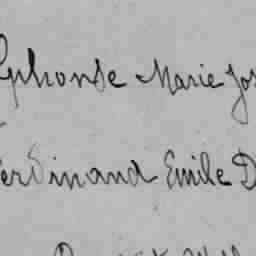 Alphonse Marie Jos
Ferdinand Emile D